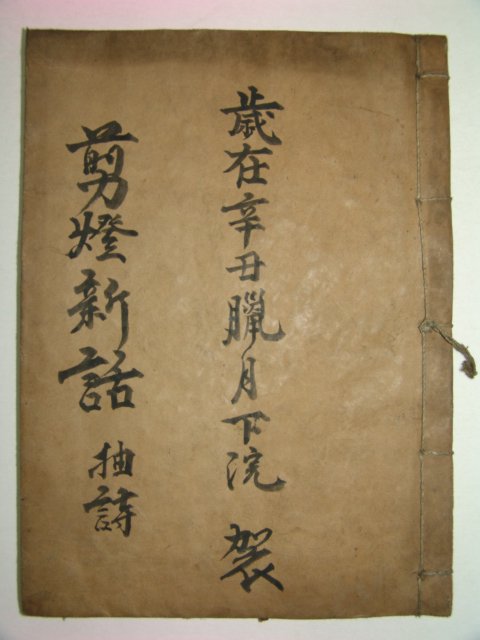 歳在辛丑臘月下浣 袈
剪燈新話 抽詩